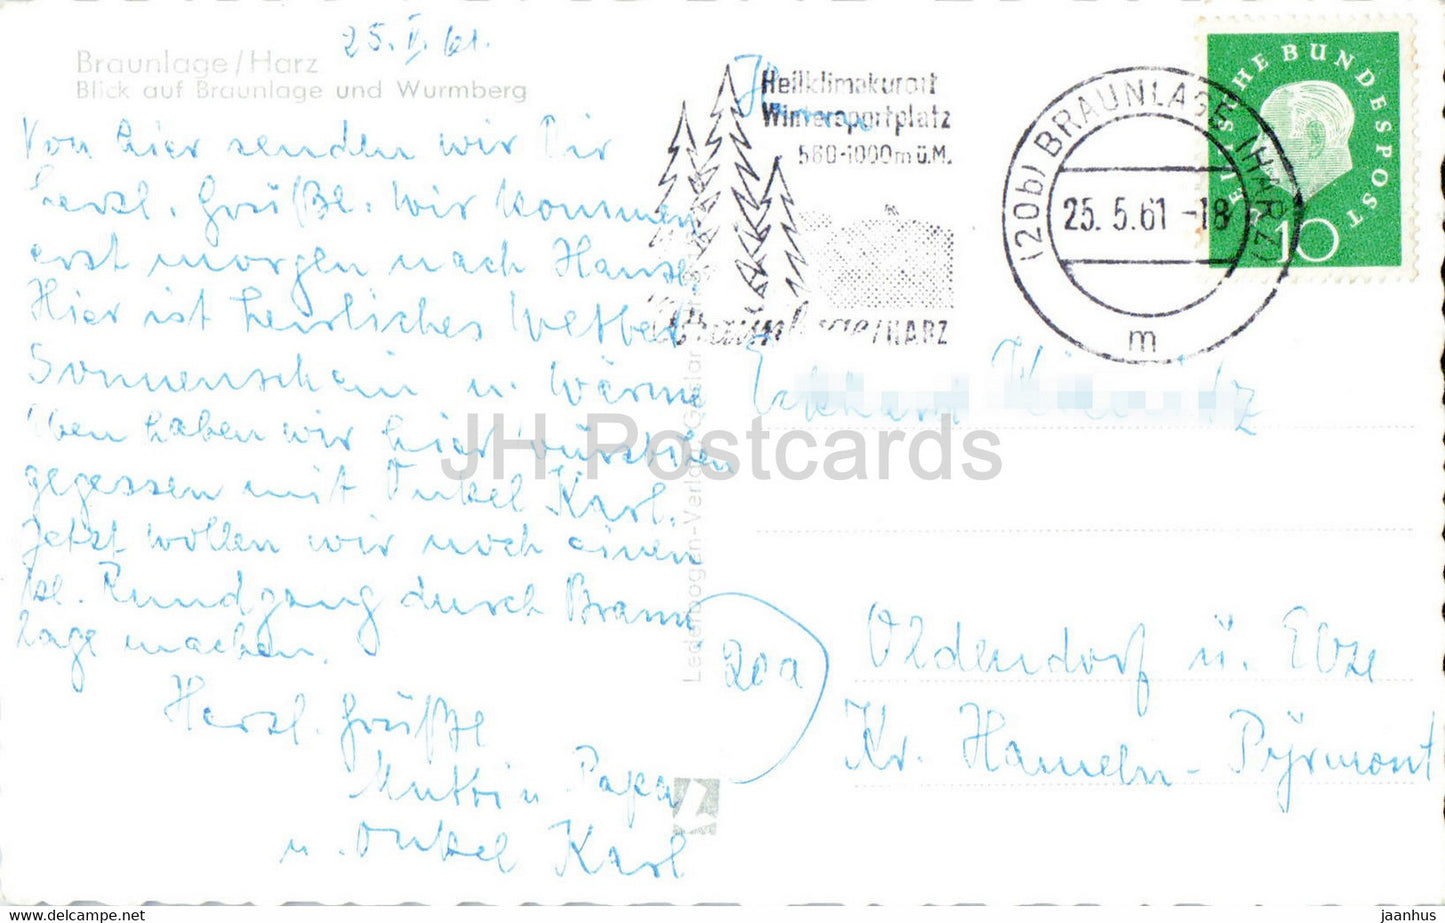 Braunlage/Harz
Blick auf Braunlage und Wurmberg
25. V. 61.
Von hier senden wir Dir
herzl. Grüße. Wir kommen
erst morgen nach Hause
Hier ist herrliches Wetter
Sonnenschein u. Wärme
Eben haben wir hier
gegessen mit Onkel Karl.
Jetzt wollen wir noch einen
kl. Rundgang durch Braun
lage machen.
Herzl. Grüße
Mutti u. Papa
u. Onkel Karl
Heilklimakurort
Wintersportplatz
560-1000m ü.M.
Braunlage/HARZ
(20b) BRAUNLAGE (HARZ)
25. 5. 61 -18
m
DEUTSCHE BUNDESPOST
10
Herrn
Eckhard
20a
Oldendorf ü. Elze
Kr. Hameln-Pyrmont
JH-Postcards
jaanhus ew.com